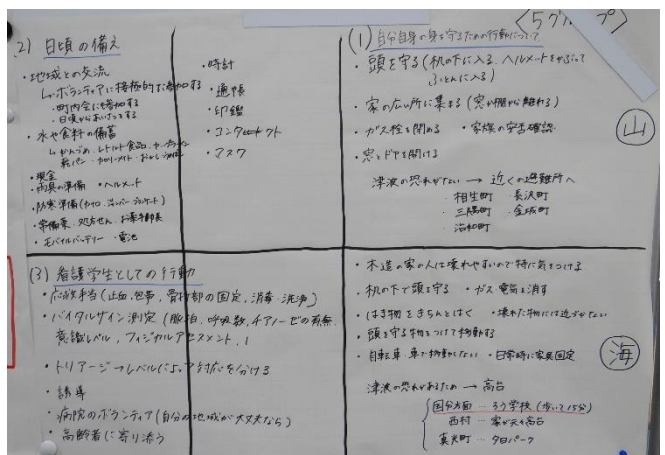 〈5グループ〉
(2) 日頃の備え
・地域との交流
↳ボランティアに積極的に参加する
・町内会にも参加する
・日頃からあいさつをする
・水や食料の備蓄
↳かんづめ、レトルト食品、
乾パン・カロリーメイト・
・現金
・雨具の準備 ・ヘルメット
・防寒準備(カイロ、
・常備薬、処方せん、お薬手帳
・モバイルバッテリー ・電池
・時計
・通帳
・印鑑
・コンタクト
・マスク
(1) 自分自身の身を守るための行動について
・頭を守る(机の下に入る、ヘルメットをかぶって
ふとんに入る)
・家の広い所に集まる(窓や棚から離れる)
・ガス栓を閉める ・家族の安否確認
・窓とドアを開ける
津波の恐れがない → 近くの避難所へ
・相生町 ・長沢町
・三隅町 ・金城町
・浩和町
山
(3) 看護学生としての行動
・応急手当(止血、包帯、骨折部の固定、消毒・洗浄)
・バイタルサイン測定(脈拍、呼吸数、チアノーゼの有無、
意識レベル、フィジカルアセスメント、
・トリアージ→レベルによって対応を分ける
・誘導
・病院のボランティア(自分の地域が大丈夫なら)
・高齢者に寄り添う
・木造の家の人は壊れやすいので特に気をつける
・机の下で頭を守る ・ガス、電気を消す
・はき物をきちんとはく ・壊れた物には近づかない
・頭を守る物をつけて移動する
・自転車、車で移動しない ・日常時に家具固定
海
津波の恐れがあるため → 高台
国分方面 … ろう学校(歩いて15分)
西村 … 家が元々高台
真光町 … 夕日パーク